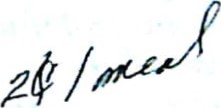 2¢/meal